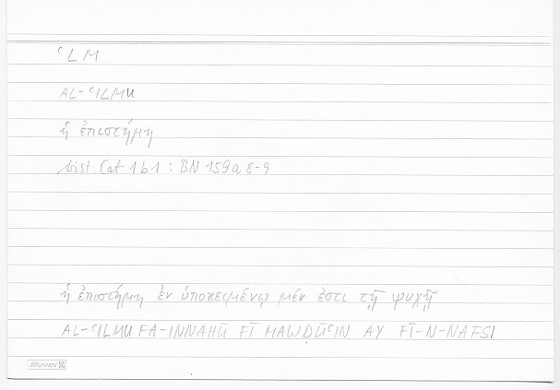 ʿLM
AL-ʿILMU
ἡ ἐπιστήμη
Arist. Cat 1b1 : BN 159a8-9
ἡ ἐπιστήμη ἐν ὑποκειμένῳ μέν ἐστι τῇ ψυχῇ
AL-ʿILMU FA-INNAHŪ FĪ MAWḌŪʿIN AY FĪ-N-NAFSI